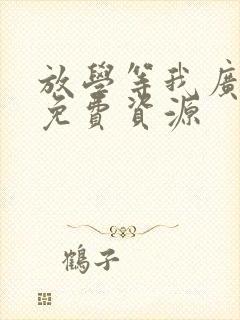 放學等我廣
免費資源
鶴子